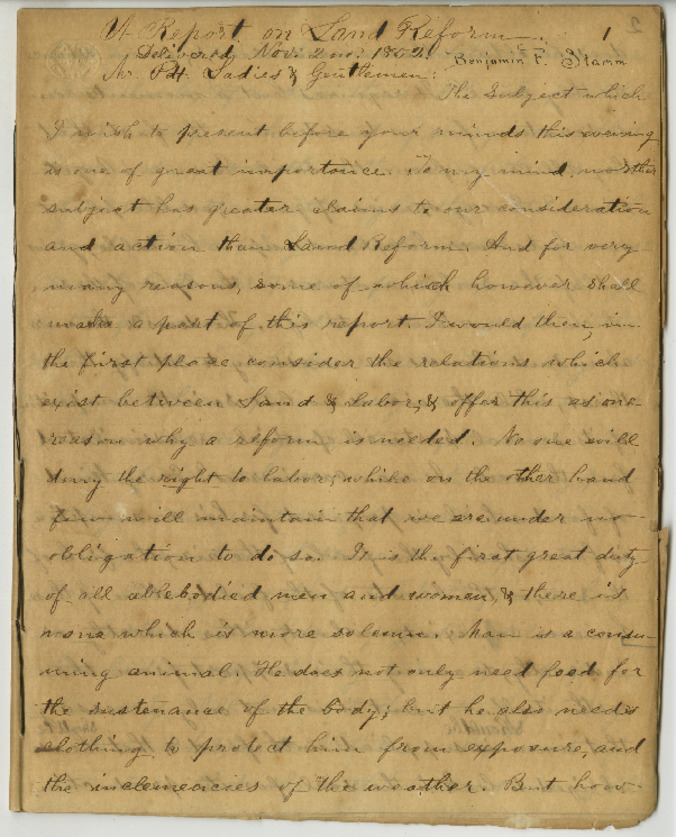 A Report on Land Reform. 1
Delivered, Nov. 2nd. 1852. Benjamin F. Stamm
Mr. Pdt. Ladies & Gentlemen:
The Subject which
I wish to present before your minds this evening
is one of great importance. To my mind, no other
subject has greater claims to our consideration
and action than Land Reform. And for very
many reasons, some of which however shall
make a part of this report. I would then, in
the first place consider the relations which
exist between Land & Labor; & offer this as one
reason why a reform is needed. No one will
deny the right to labor; while on the other hand
few will maintain that we are under no
obligation to do so. It is the first great duty
of all ablebodied men and women, & there is
none which is more solemn. Man is a consu-
ming animal. He does not only need food for
the sustenance of the body; but he also needs
clothing to protect him from exposure, and
the inclemencies of the weather. But how-